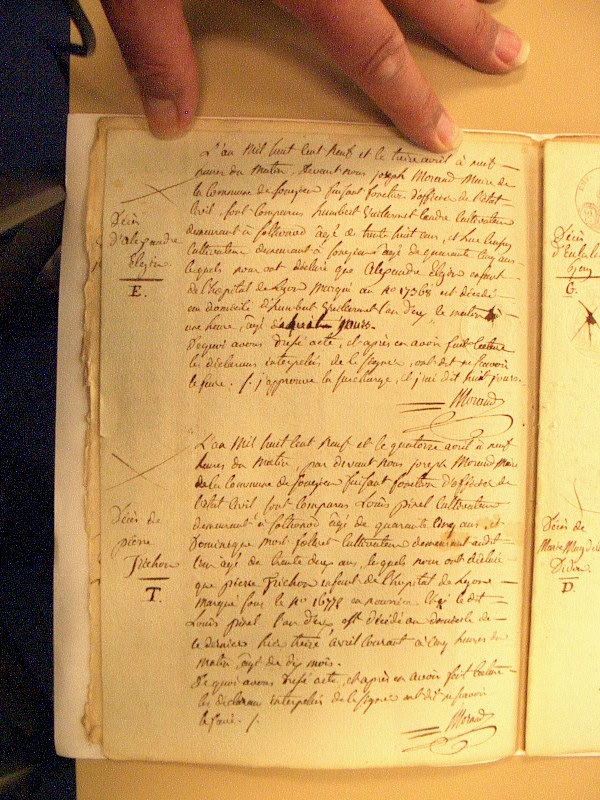 L'an Mil huit Cent Neuf et le treize avril à neuf
heures du Matin, devant nous joseph Morand Maire de
la Commune de faisant fonction d'officier de l'état
Civil, sont Comparus humbert Guillermet Cultivateur
demeurant à agé de trente huit ans, et
Cultivateur demeurant à agé de quarante Cinq ans
lesquels nous ont déclaré que Alexandre Elezin enfant
de l'hopital de Lyon Marqué au No 17368 est décédé
en domicile d'humbert Guillermet l'un d'eux le matin à
une heure, agé de jours.
De quoi avons dressé acte, et après en avoir fait lecture
les déclarans interpelés de le signer, ont dit ne savoir
le faire. /. j'approuve la surcharge, et j'ai dit huit jours.
Morand
Décès
d'Alexandre
Elezin
E.
L'an Mil huit Cent Neuf et le quatorze avril à neuf
heures du Matin, par devant Nous joseph Morand Maire
de la Commune de faisant fonction d'officier de
l'état Civil, sont Comparus Louis pinel Cultivateur
demeurant à agé de quarante Cinq ans et
Dominique Cultivateur demeurant audit
lieu agé de trente deux ans, lesquels nous ont déclaré
que pierre Trichon enfant de l'hopital de Lyon
Marqué sous le No en nourrice Chez le dit
Louis pinel l'un d'eux est décédé au domicile de
ce dernier hier treize avril Courant à Cinq heures du
Matin agé de dix mois.
De quoi avons dressé acte, et après en avoir fait lecture
les déclarans interpelés de le signer ont dit ne savoir
le faire. /.
Morand
Décès de
pierre
Trichon
T.
Décès
G.
Décès de
D.